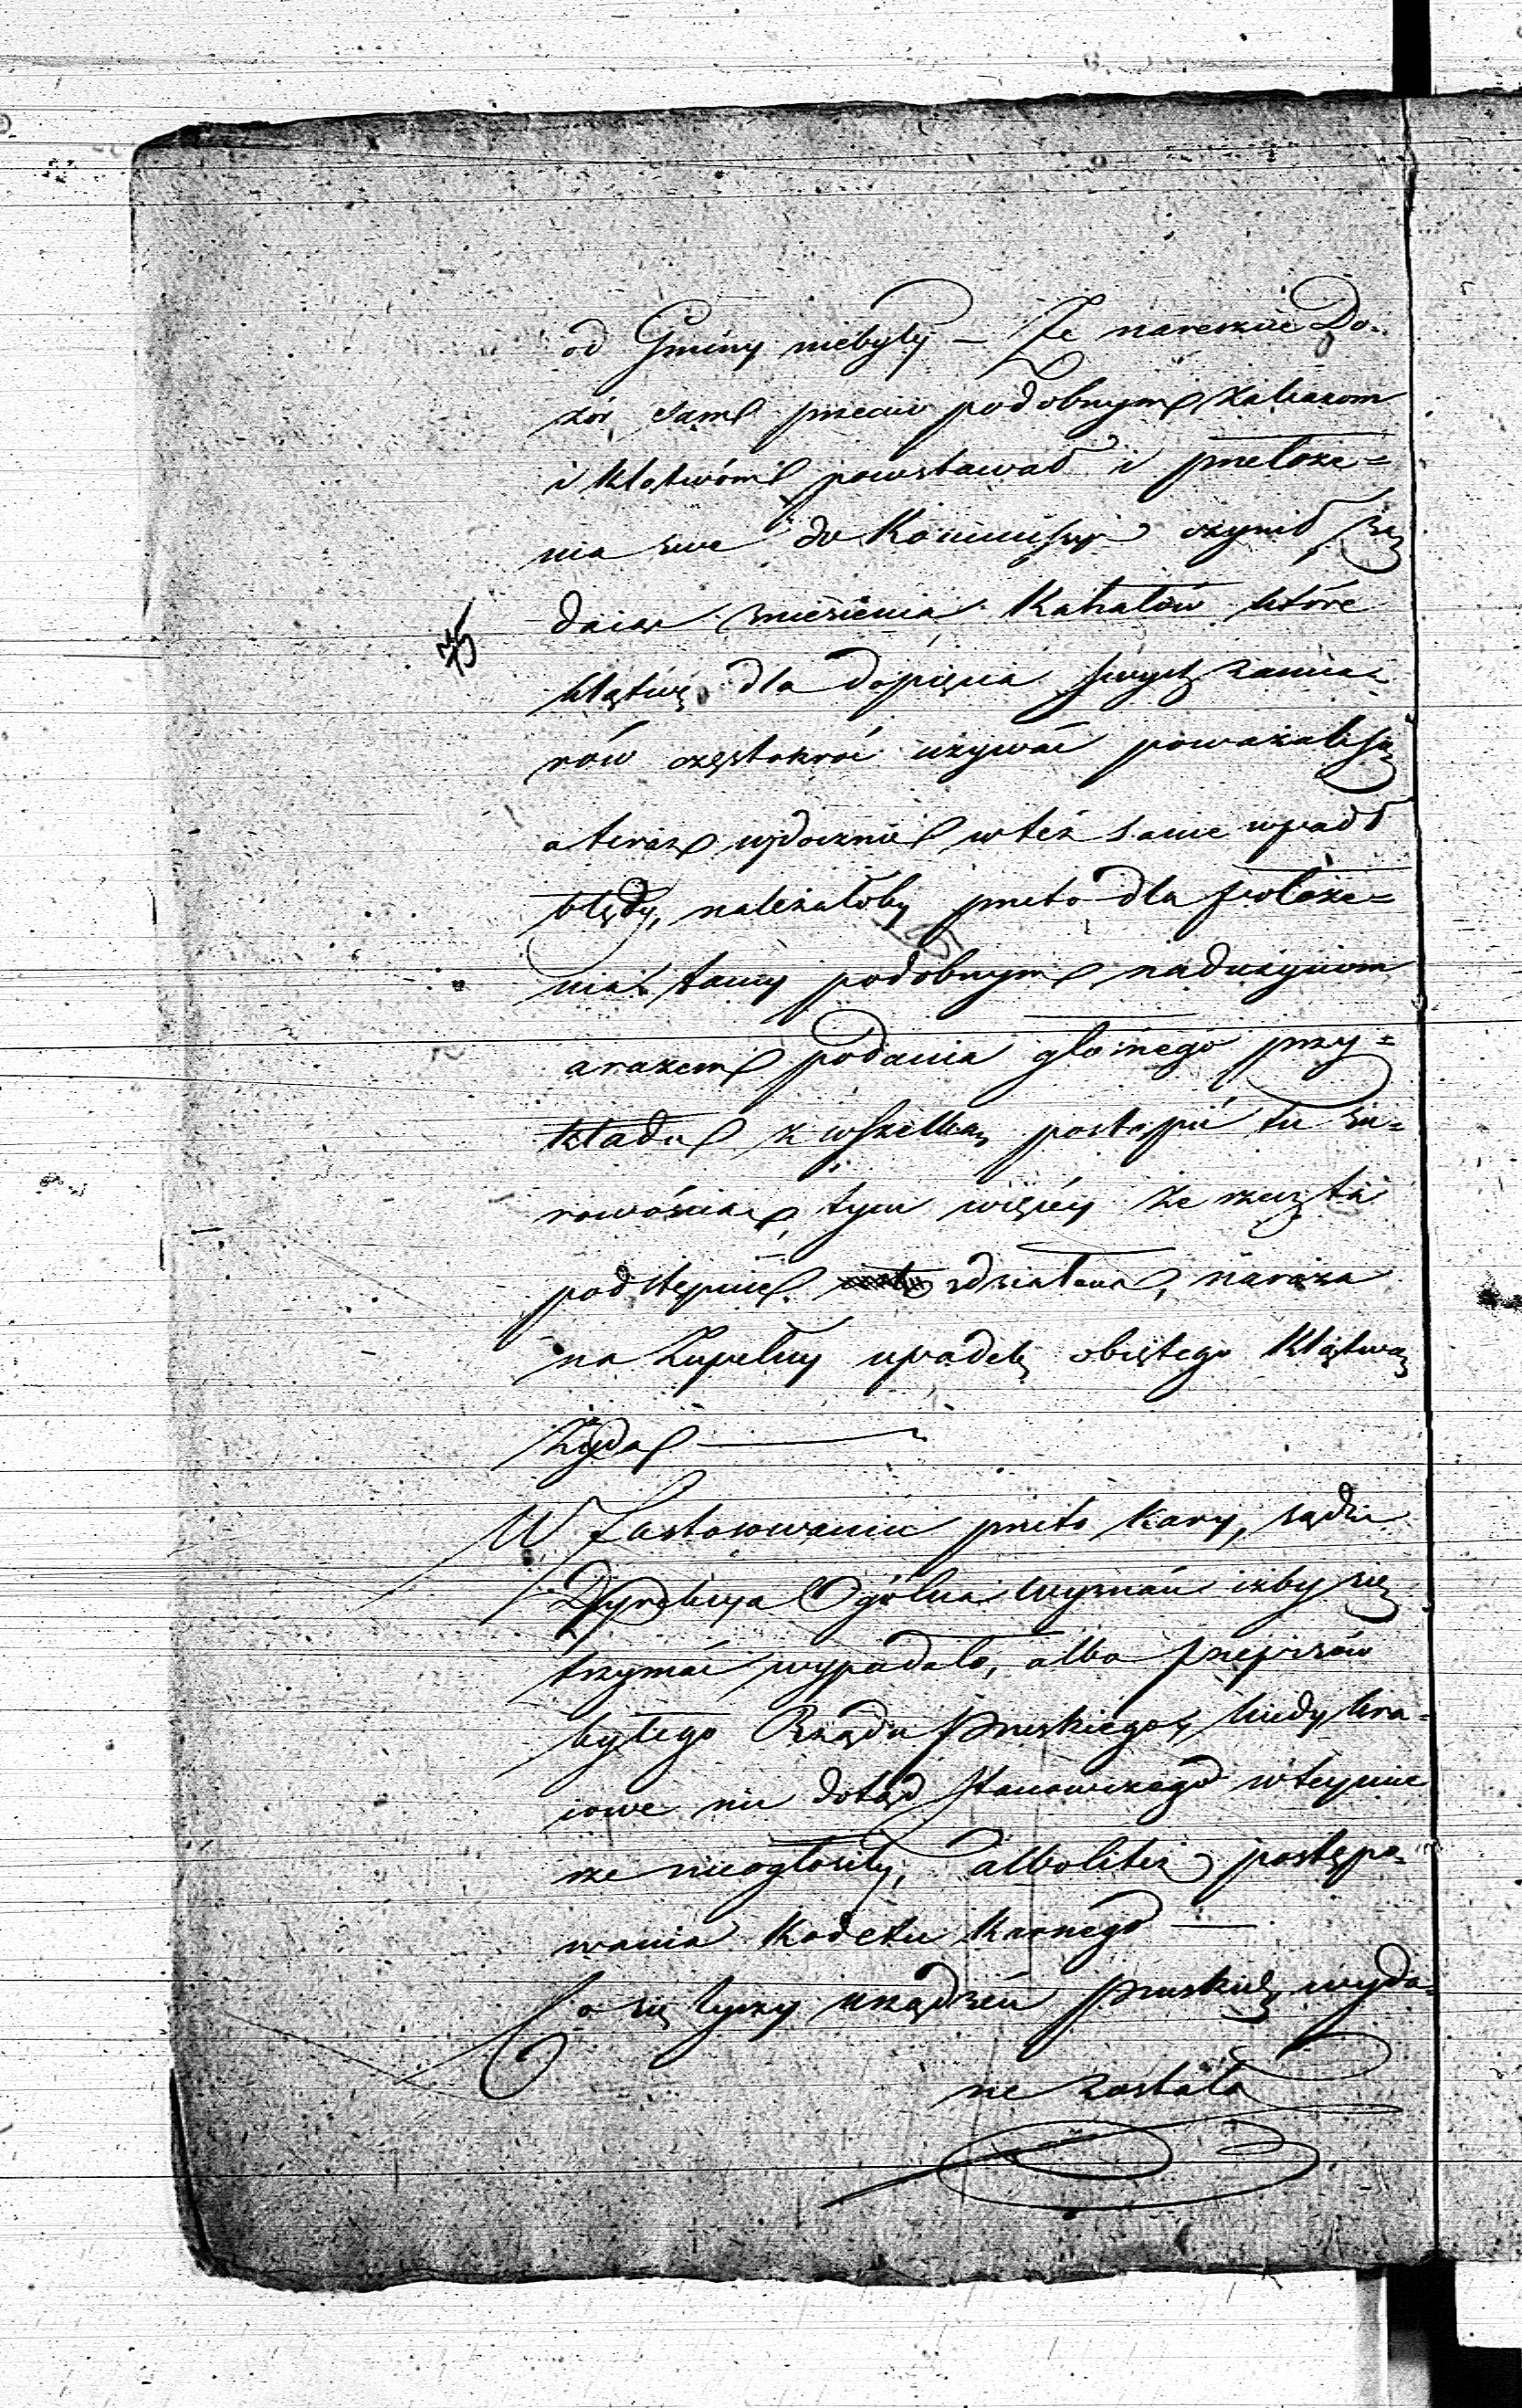 od Gminy niebyły – Że nareszcie Do-
zór sam przeciw podobnym zakazom
i klątwóm powstawał i przełoże=
nia swe do Kommissyi czynił żą
daiąc zniesienia Kahałów które
klątwę dla dopięcia swych zamia-
rów częstokroć używać poważali się
a teraz widocznie w też same wpadł
błędy, należałoby przeto dla położe=
nia tamy podobnym nadużyciom
a razem podania głośnego przy=
kładu z wszelką postąpić tu su-
rowością, tym więcéy że rzecz ta
podstępnie zdziałana, naraża
na zupełny upadek obiętego klątwą
Żyda —
W zastosowaniu przeto kary, sądzi
Dyrekcya Ogólna Wyznań iżby się
trzymać wypadało, albo przepisów
byłego Rządu Pruskiego, kiedy kra-
iowe nic dotąd stanowczego w teymie
rze nieogłosiły, albo liteż postępo-
wania Kodexu Karnego —
Co się tycze urządzeń pruskich wyda-
ne została
75